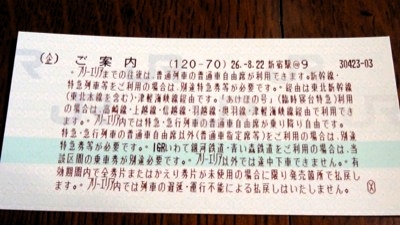 (企) ご 案 内 (120-70) 26.-8.22 新宿駅 9 30423-03
・フリーエリアまでの往復は、普通列車の普通車自由席が利用できます。新幹線・
特急列車等をご利用の場合は、別途特急券等が必要です。・経由は東北新幹線
(東北本線を含む)・津軽海峡線経由です。「あけぼの号」(臨時寝台特急)利用
の場合は、高崎線・上越線・信越線・羽越線・奥羽線・津軽海峡線経由です。・
フリーエリア内では特急・急行列車の普通車自由席が乗り降り自由です。・
特急・急行列車の普通車自由席以外(普通車指定席等)をご利用の場合は、別途
特急券等が必要です。・IGRいわて銀河鉄道・青い森鉄道をご利用の場合は、当
該区間の乗車券が別途必要です。・フリーエリア以外では途中下車できません。・有
効期間内で全券片またはかえり券片が未使用の場合に限り発売箇所で払戻しし
ます。・フリーエリア内では列車の遅延・運行不能による払戻しはいたしません。